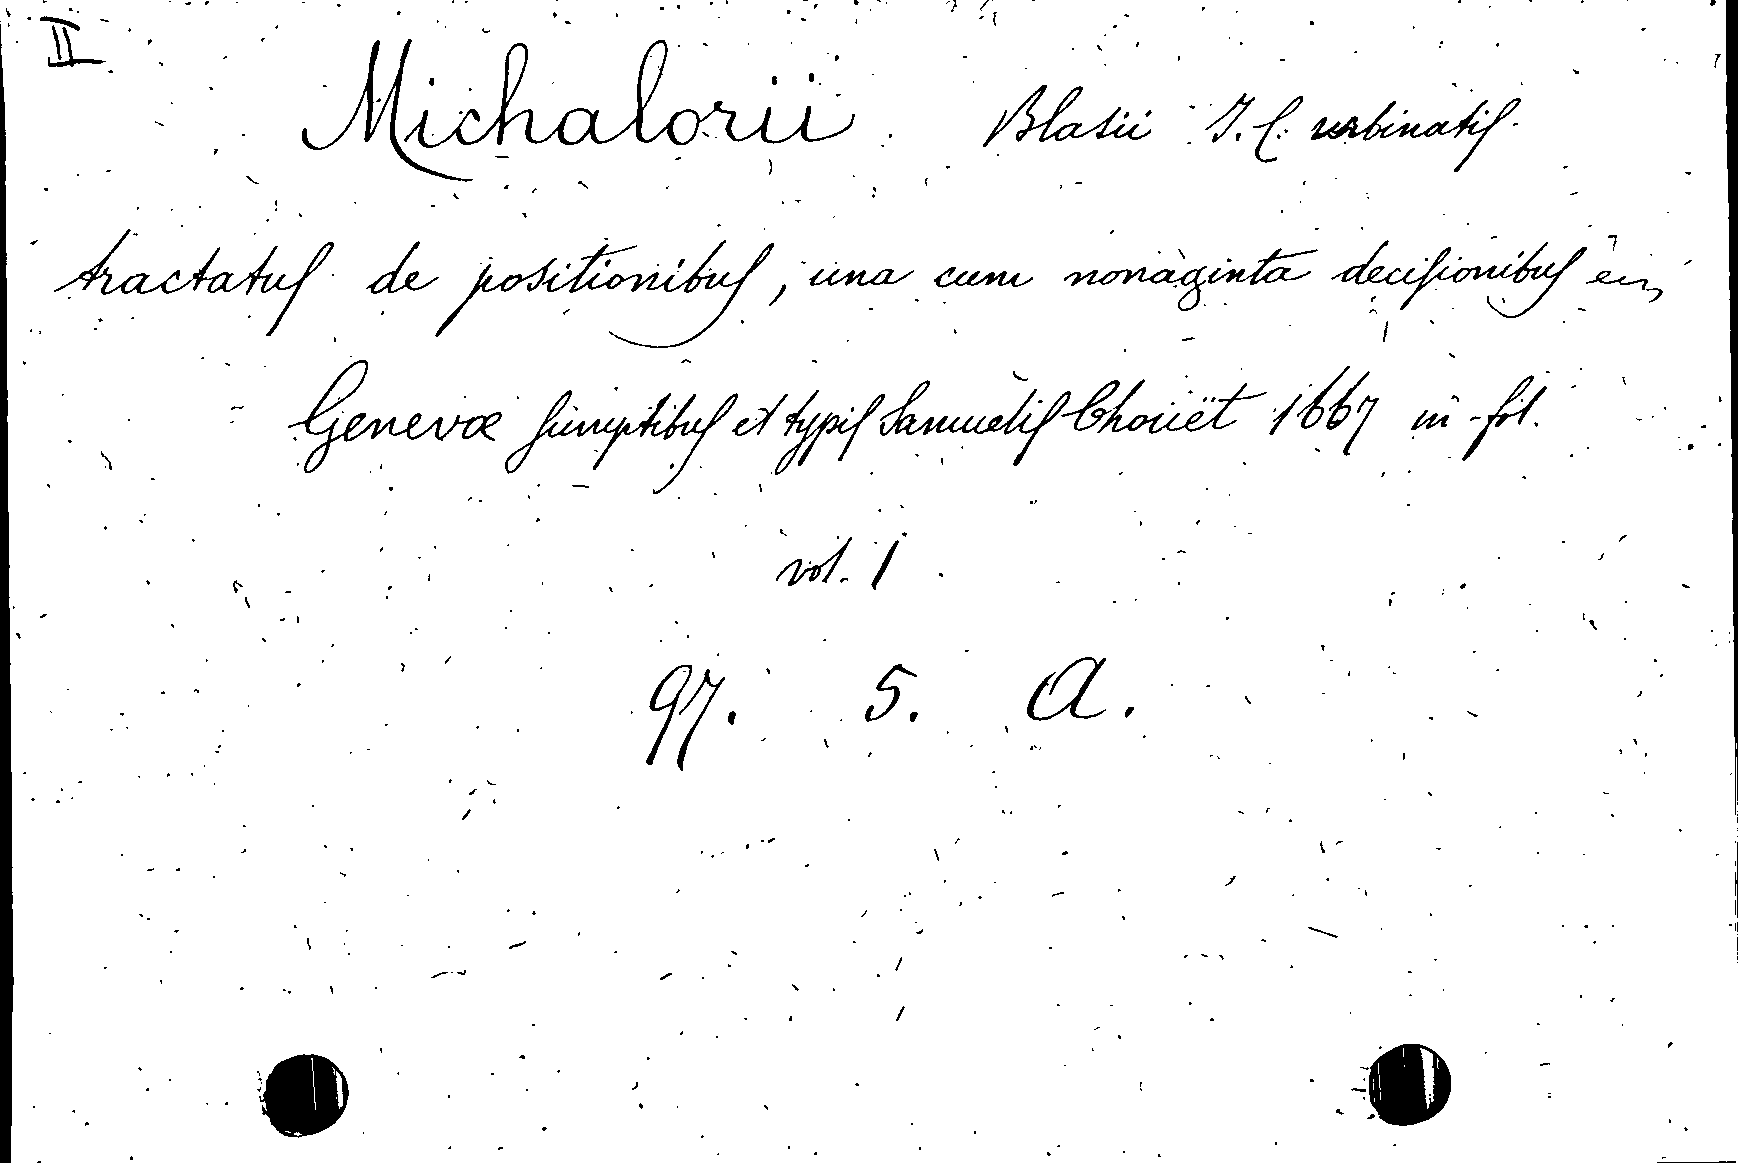 II
Michalorii Blasii J. C. urbinatis
tractatus de positionibus, una cum nonaginta decisionibus
Genevæ sumptibus et typis Samuelis Chouët 1667 in-fol.
vol. 1
97. 5. A.